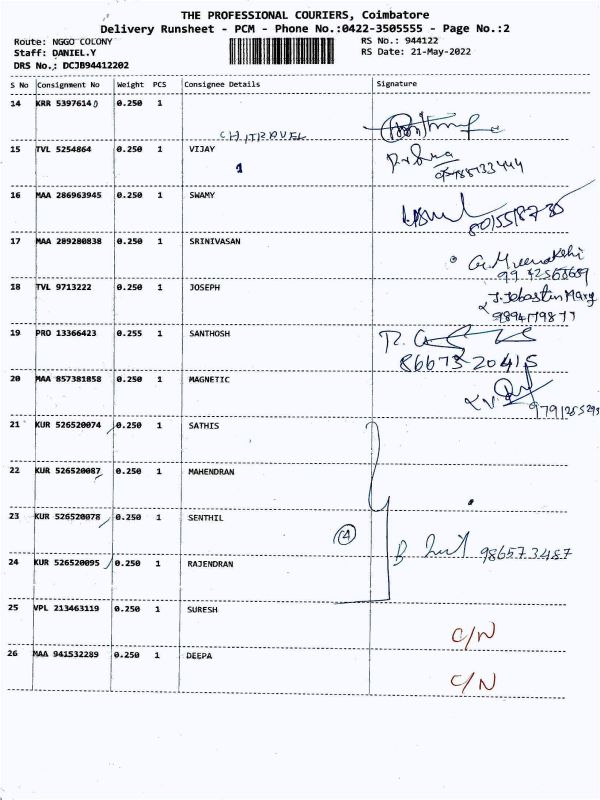 THE PROFESSIONAL COURIERS, Coimbatore
Delivery Runsheet - PCM - Phone No.:0422-3505555 - Page No.:2
Route: NGGO COLONY RS No.: 944122
Staff: DANIEL.Y RS Date: 21-May-2022
DRS No.: DCJB94412202
S No Consignment No Weight PCS Consignee Details Signature
14 KRR 53976140 0.250 1
15 TVL 5254864 0.250 1 VIJAY
1
16 MAA 286963945 0.250 1 SWAMY
8015518735
17 MAA 289280838 0.250 1 SRINIVASAN
G. Meenakshi
18 TVL 9713222 0.250 1 JOSEPH
9894179877
19 PRO 13366423 0.255 1 SANTHOSH
86673-20415
20 MAA 857381058 0.250 1 MAGNETIC
21 KUR 526520074 0.250 1 SATHIS
22 KUR 526520087 0.250 1 MAHENDRAN
23 KUR 526520078 0.250 1 SENTHIL
4
24 KUR 526520095 0.250 1 RAJENDRAN
986573487
25 VPL 213463119 0.250 1 SURESH
C/N
26 MAA 941532289 0.250 1 DEEPA
C/N